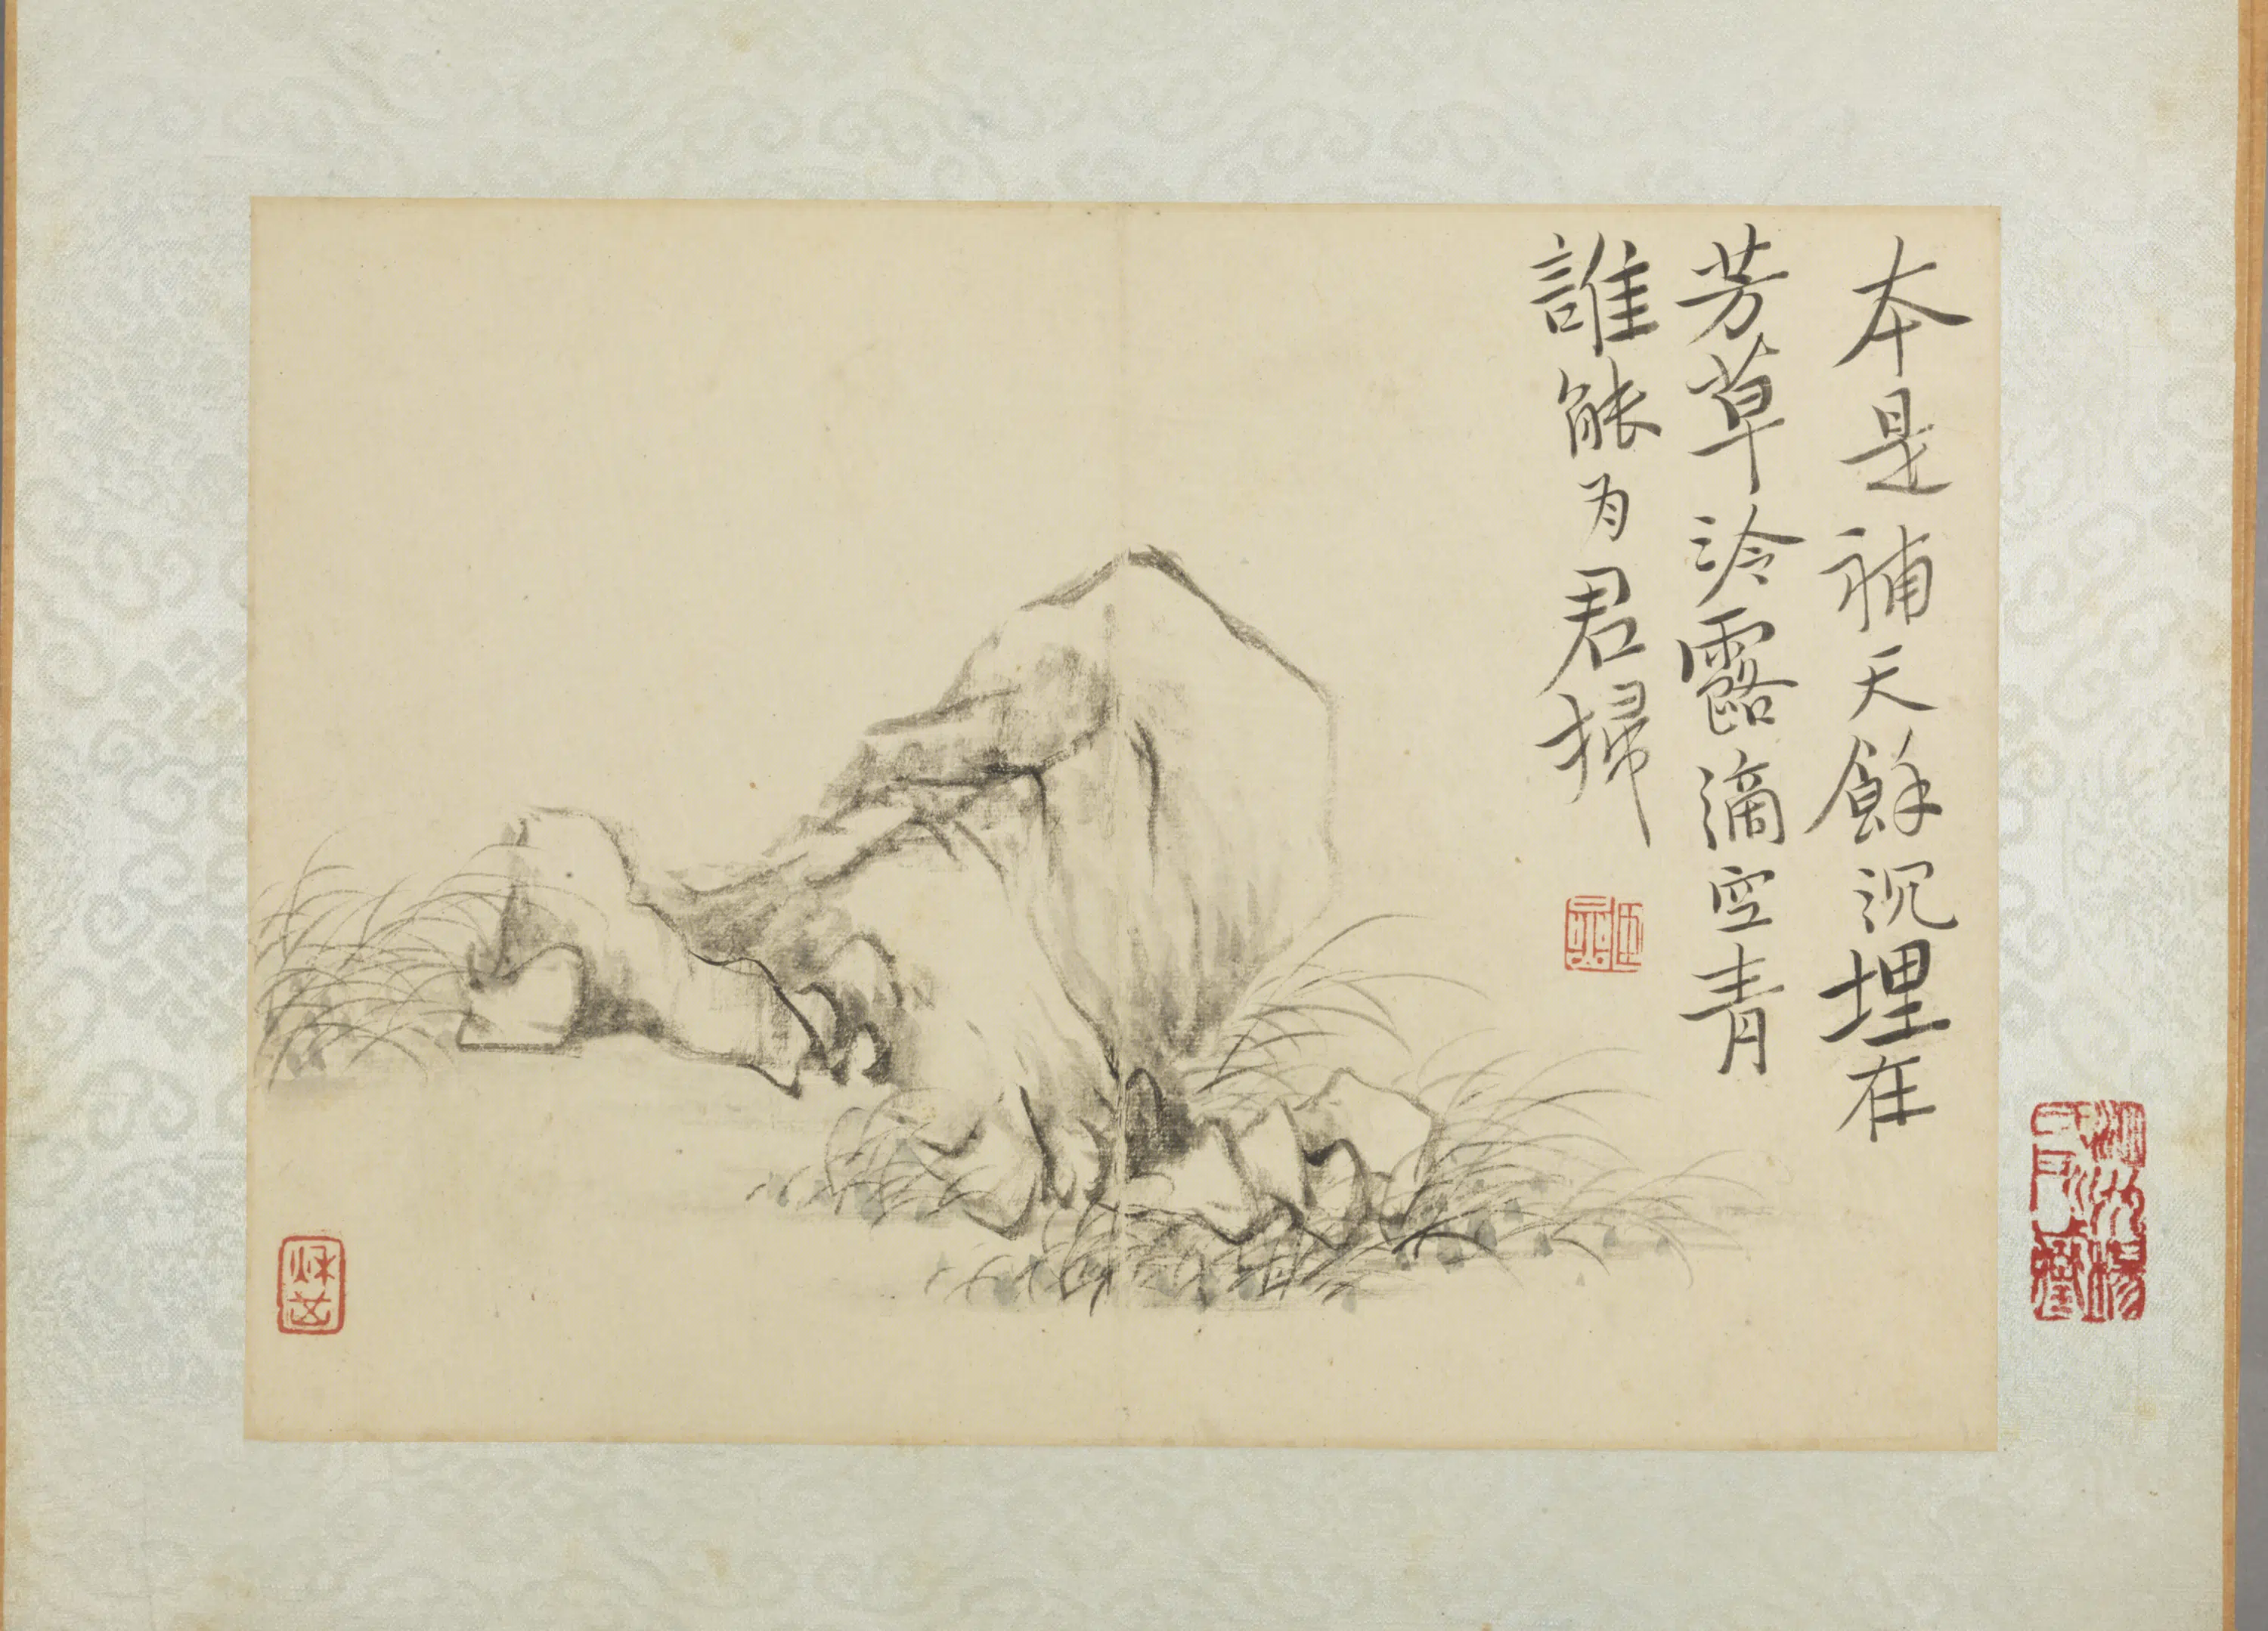 本是補天餘沉埋在
芳草泠露滴空青
誰能为君掃